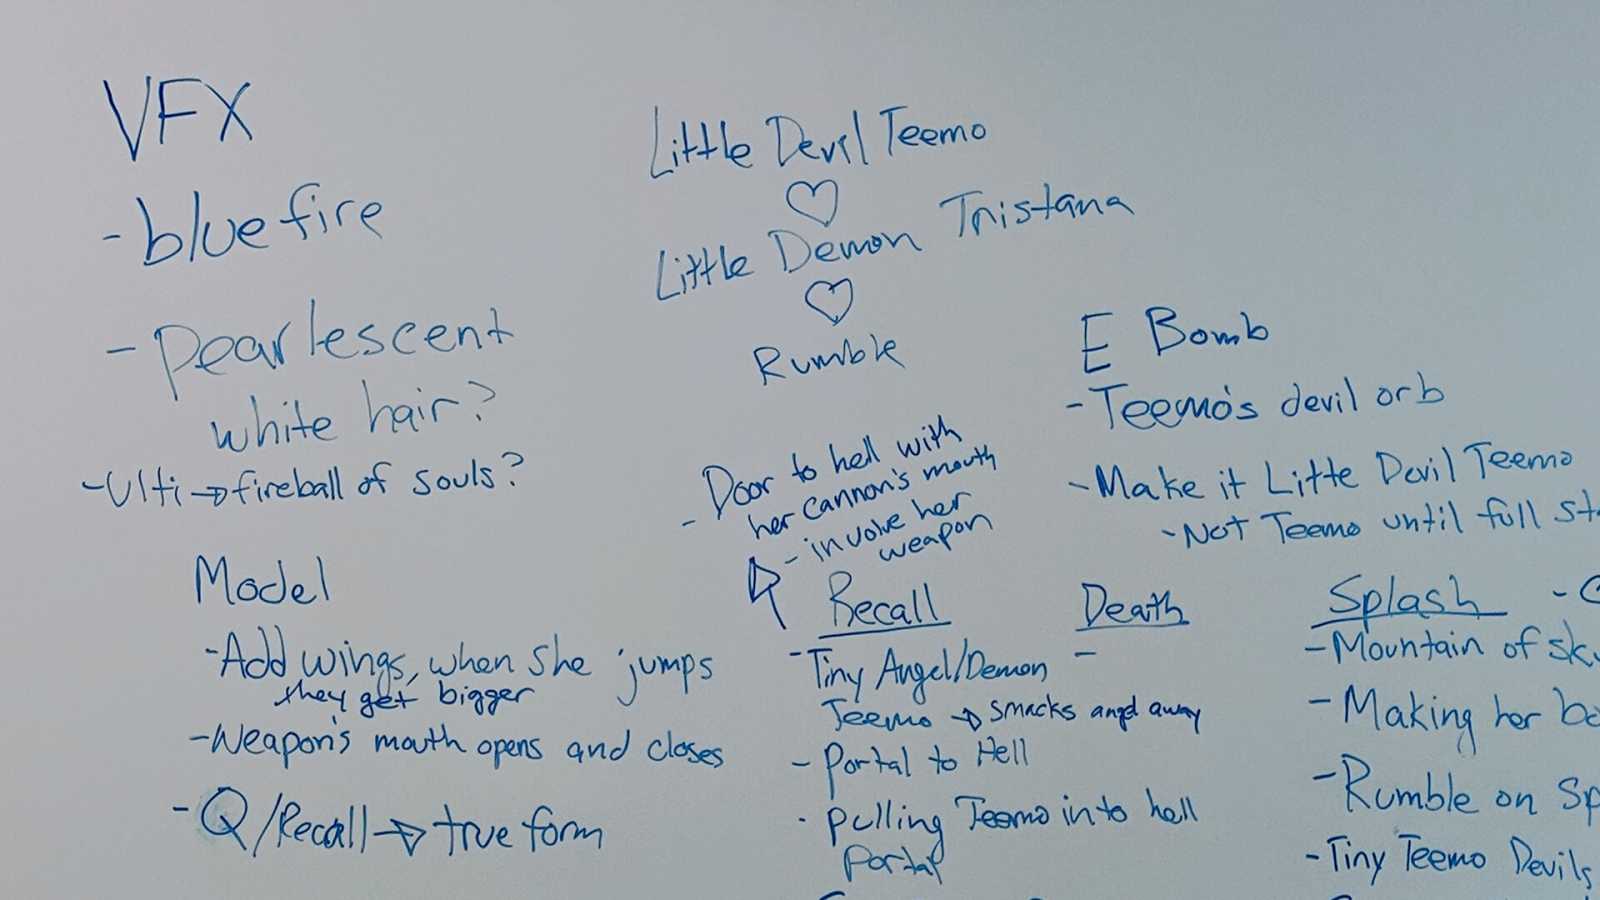 VFX
- blue fire
- pearlescent
white hair?
- Ulti → fireball of souls?
Model
- Add wings, when she jumps
they get bigger
- Weapon's mouth opens and closes
- Q/Recall → true form
Little Devil Teemo
♡
Little Demon Tristana
♡
Rumble
- Door to hell with
her cannon's mouth
- involve her
weapon
Recall
- Tiny Angel/Demon
Teemo → smacks angel away
- Portal to Hell
- pulling Teemo into hell
portal
Death
-
E Bomb
- Teemo's devil orb
- Make it Litte Devil Teemo
- Not Teemo until full
Splash -
- Mountain of
- Making her
- Rumble on
- Tiny Teemo Devils